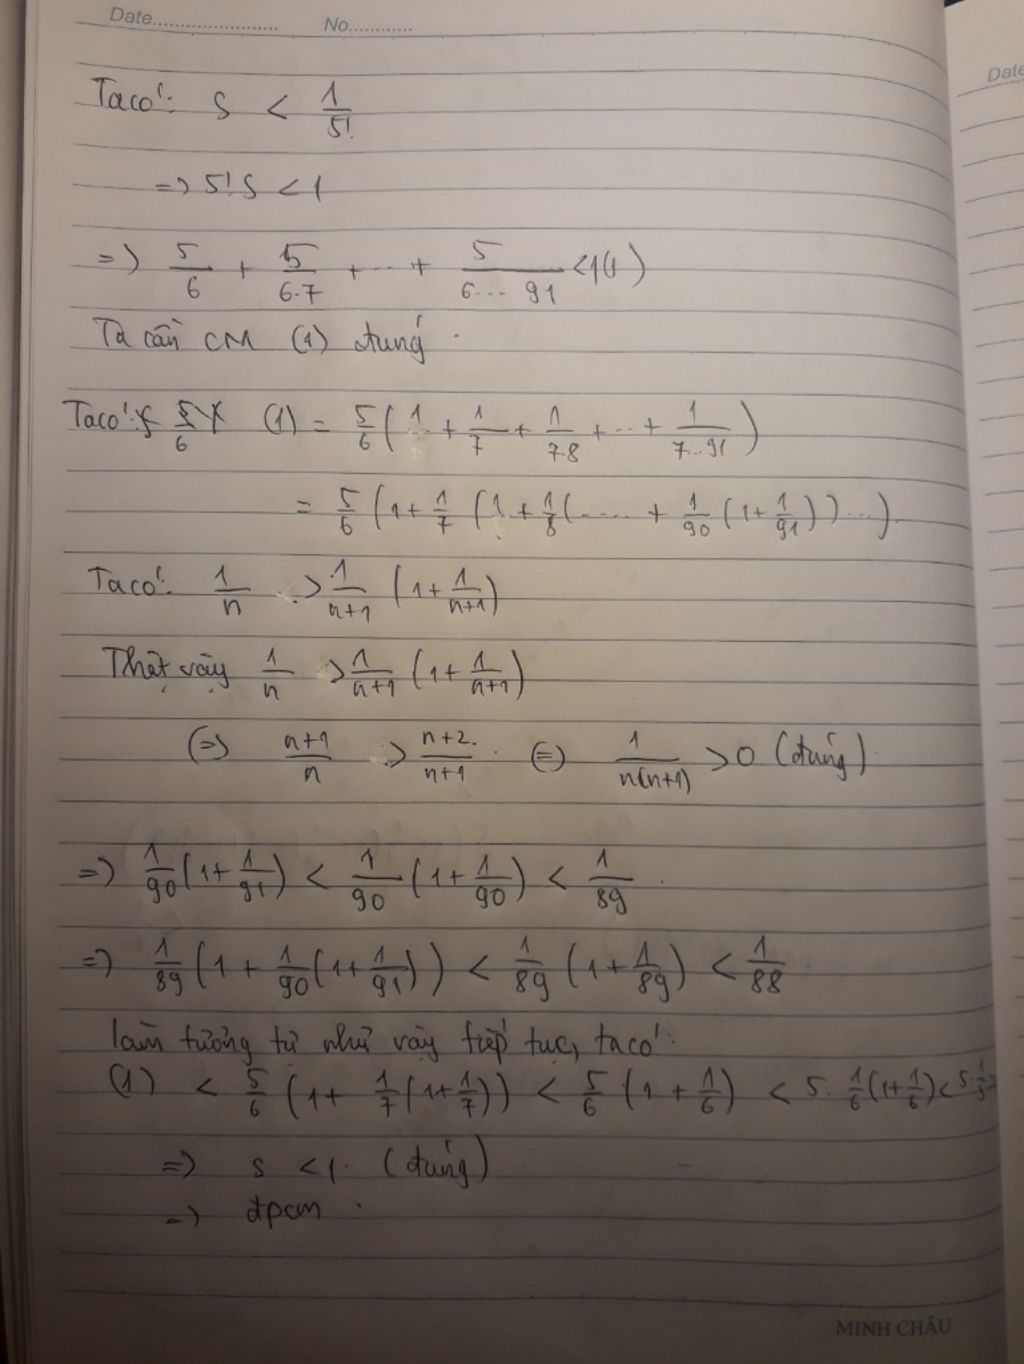 Date........................ No............
Ta có: S < 1/5!
=> 5!S < 1
=> 5/6 + 5/6.7 + ... + 5/6... 91 < 1 (1)
Ta cần CM (1) đúng.
Ta có: 5/6 (1) = 5/6 (1 + 1/7 + 1/7.8 + ... + 1/7...91)
= 5/6 (1 + 1/7 (1 + 1/8 (..... + 1/90 (1 + 1/91)) ...)
Ta có: 1/n > 1/n+1 (1 + 1/n+1)
Thật vậy 1/n > 1/n+1 (1 + 1/n+1)
(=) n+1/n > n+2/n+1 (=) 1/n(n+1) > 0 (đúng)
=> 1/90 (1 + 1/91) < 1/90 (1 + 1/90) < 1/89.
=> 1/89 (1 + 1/90 (1 + 1/91)) < 1/89 (1 + 1/89) < 1/88
làm tương tự như vậy tiếp tục, ta có:
(1) < 5/6 (1 + 1/7 (1 + 1/7)) < 5/6 (1 + 1/6) < 5. 1/6 (1 + 1/6) < 5. 1/5
=> S < 1. (đúng)
=> đpcm.
MINH CHÂU
Date